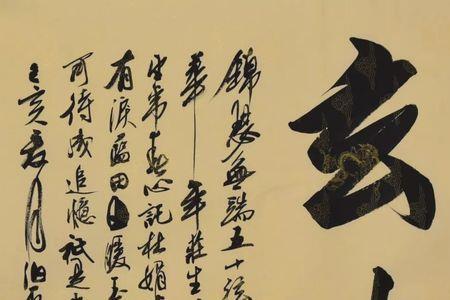 玄
錦瑟無端五十弦
華年莊生
望帝春心託杜鵑
有淚藍田日暖玉
可待成追憶祇是
亥春月